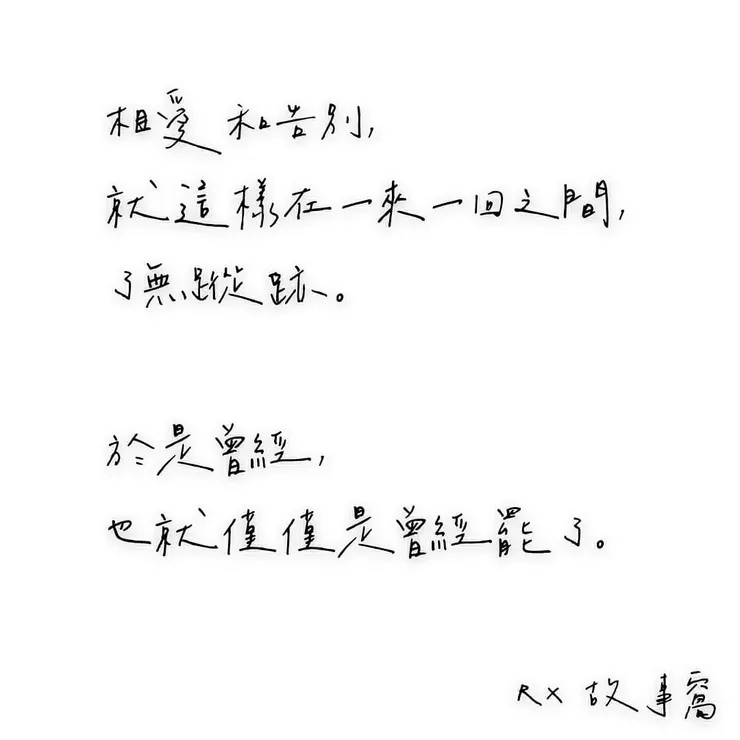 相愛和告別，
就這樣在一來一回之間，
了無蹤跡。
於是曾經，
也就僅僅是曾經罷了。
RX 故事窩